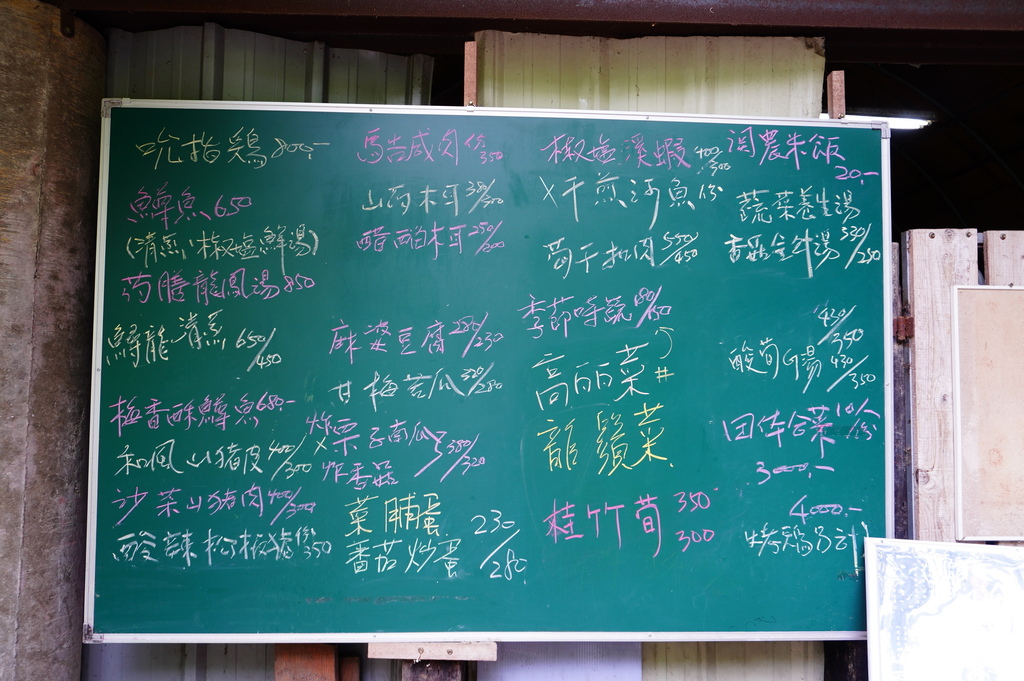 吮指鶏 800.-
鱒魚 650
(清蒸、椒塩、鮮湯)
药膳龍鳳湯 850
鱘龍 清蒸 650/450
梅香酥鱒魚 680.-
和風山猪皮 400/300
沙茶山猪肉 400/300
酸辣松板猪 份350
馬告咸肉 份350
山药木耳 380/300
醋酌木耳 250/200
麻婆豆腐 280/230
甘梅苦瓜 320/280
炸栗子南瓜 380/320
炸香菇
菜脯蛋 230/280
番茄炒蛋
椒塩溪蝦 400/300
X干煎河魚 份
筍干扣肉 550/450
季節時蔬 180/150
高丽菜 #
龍鬚菜.
桂竹筍 350 300
闵農米飯 20.-
蔬菜養生湯
香菇金針湯 330/280
430/350
酸筍G湯 430/350
团体合菜 10份
3000.-
4000.-
烤鶏另計